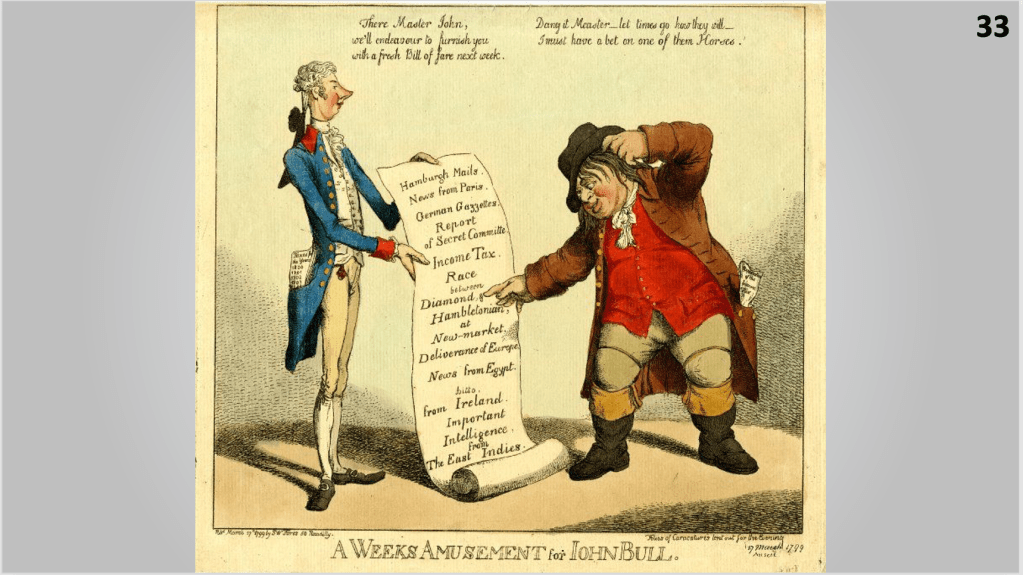 33
There Master John,
we'll endeavour to furnish you
with a fresh Bill of fare next week.
Dang it Measter—let times go how they will—
I must have a bet on one of them Horses.
Hamburgh Mails.
News from Paris.
German Gazzettes.
Report
of Secret Committe
Income Tax.
Race
between
Diamond, &
Hambletonian,
at
New-market.
Deliverance of Europe
News from Egypt.
ditto.
from Ireland.
Important
Intelligence,
from
The East Indies.
Pubd March 17th 1799 by SW Fores 50 Piccadilly.
Folios of Caracatures lent out for the Evening
17 March 1799
A WEEKS AMUSEMENT for IOHN BULL.